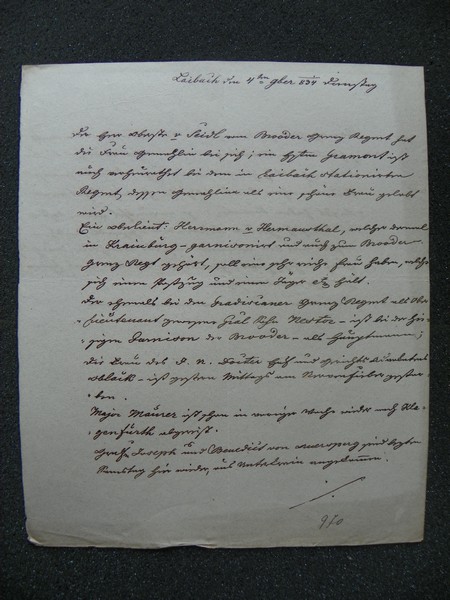 Laibach den 4ten 9ber 1834 Dienstag
Der Herr Oberst v Seidl vom Brooder Grenz Regmt hat
die Frau Gemahlin bei sich; ein Gramont ist
auch verheurathet bei dem in Laibach stationirten
Regmt, dessen Gemahlin als eine schöne Frau gelobt
wird.
Ein Oberlieut: Herrmann v Hermannsthal, welcher
in Krainburg garnisonirt und auch zum Brooder
Grenz Regt gehört, soll eine sehr reiche Frau haben, welche
sich einen Postzug und einen Jäger hält.
Der ehemals bei dem Gradiscaner Grenz Regmt als Ober
lieutenant gewesene Nestor ist bei der hie
sigen Garnison der Brooder als Hauptmann;
die Frau des
ist gestern Mittags am Nervenfieber gestor
ben.
Major Maurer ist schon in voriger Woche wieder nach Kla
genfurth abgereist.
Grafen Joseph und Benedict von Auersperg sind
Samstag hier wieder, aus Unterkrain angekommen.
970